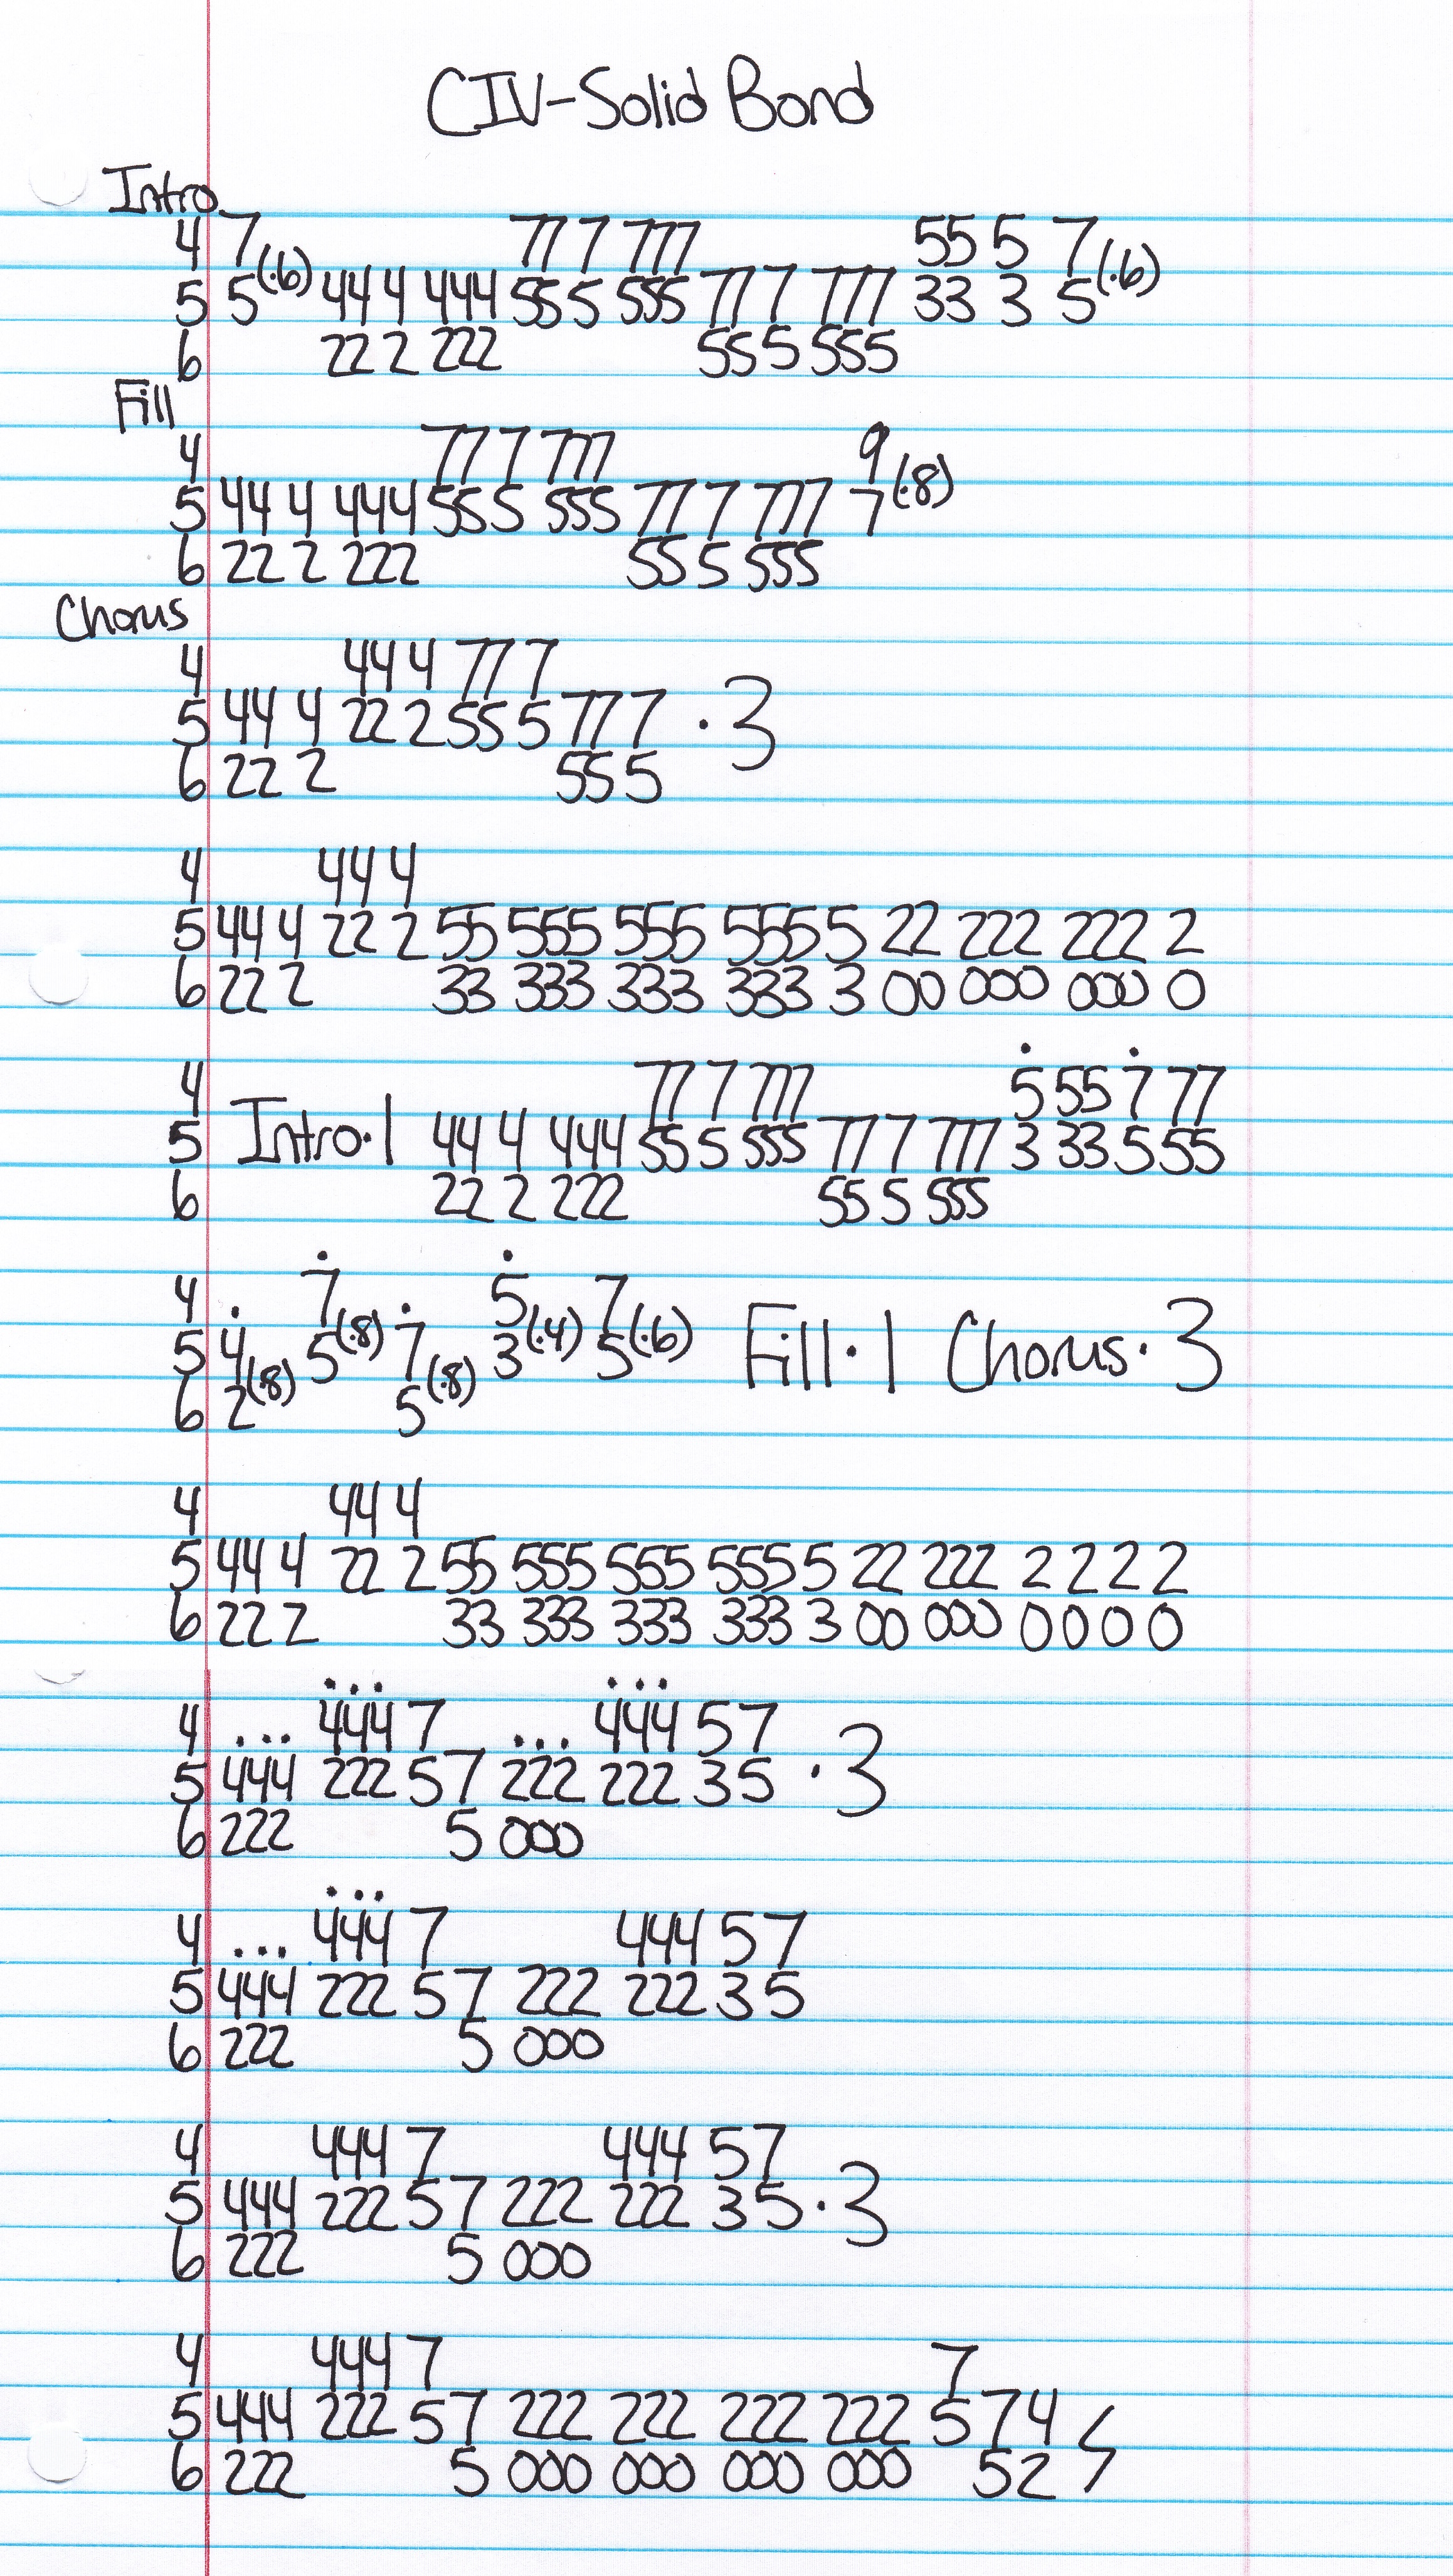 CIV-Solid Bond
Intro
4 7 77 7 777 55 5 7
5 5(·6) 44 4 444 55 5 555 77 7 777 33 3 5(·6)
6 22 2 222 55 5 555
Fill
4 77 7 777 9
5 44 4 444 55 5 555 77 7 777 7(·8)
6 22 2 222 55 5 555
Chorus
4 44 4 77 7
5 44 4 22 2 55 5 77 7 ·3
6 22 2 55 5
4 44 4
5 44 4 22 2 55 555 555 555 5 22 222 222 2
6 22 2 33 333 333 333 3 00 000 000 0
4 77 7 777 5 55 7 77
5 Intro·1 44 4 444 55 5 555 77 7 777 3 33 5 55
6 22 2 222 55 5 555
4 7 5 7
5 4 5(·8) 7 3(·4) 5(·6) Fill·1 Chorus·3
6 2(·8) 5(·8)
4 44 4
5 44 4 22 2 55 555 555 555 5 22 222 2 2 2 2
6 22 2 33 333 333 333 3 00 000 0 0 0 0
4 ... 444 7 ... 444 5 7
5 444 222 5 7 222 222 3 5 ·3
6 222 5 000
4 ... 444 7 444 5 7
5 444 222 5 7 222 222 3 5
6 222 5 000
4 444 7 444 5 7
5 444 222 5 7 222 222 3 5 ·3
6 222 5 000
4 444 7 7
5 444 222 5 7 222 222 222 222 5 7 4
6 222 5 000 000 000 000 5 2